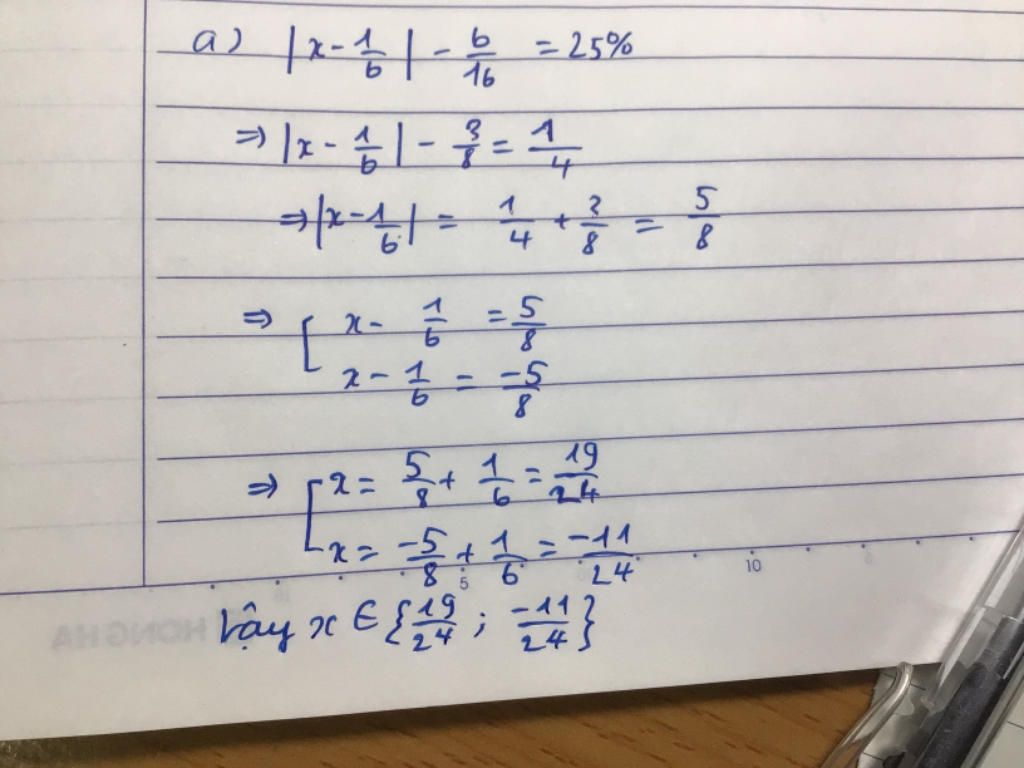 a) |x - 1/6| - 6/16 = 25%
⇒ |x - 1/6| - 3/8 = 1/4
⇒ |x - 1/6| = 1/4 + 3/8 = 5/8
⇒ [ x - 1/6 = 5/8
x - 1/6 = -5/8
⇒ [ x = 5/8 + 1/6 = 19/24
x = -5/8 + 1/6 = -11/24
5 10
Vậy x ∈ {19/24 ; -11/24}
HONG HA